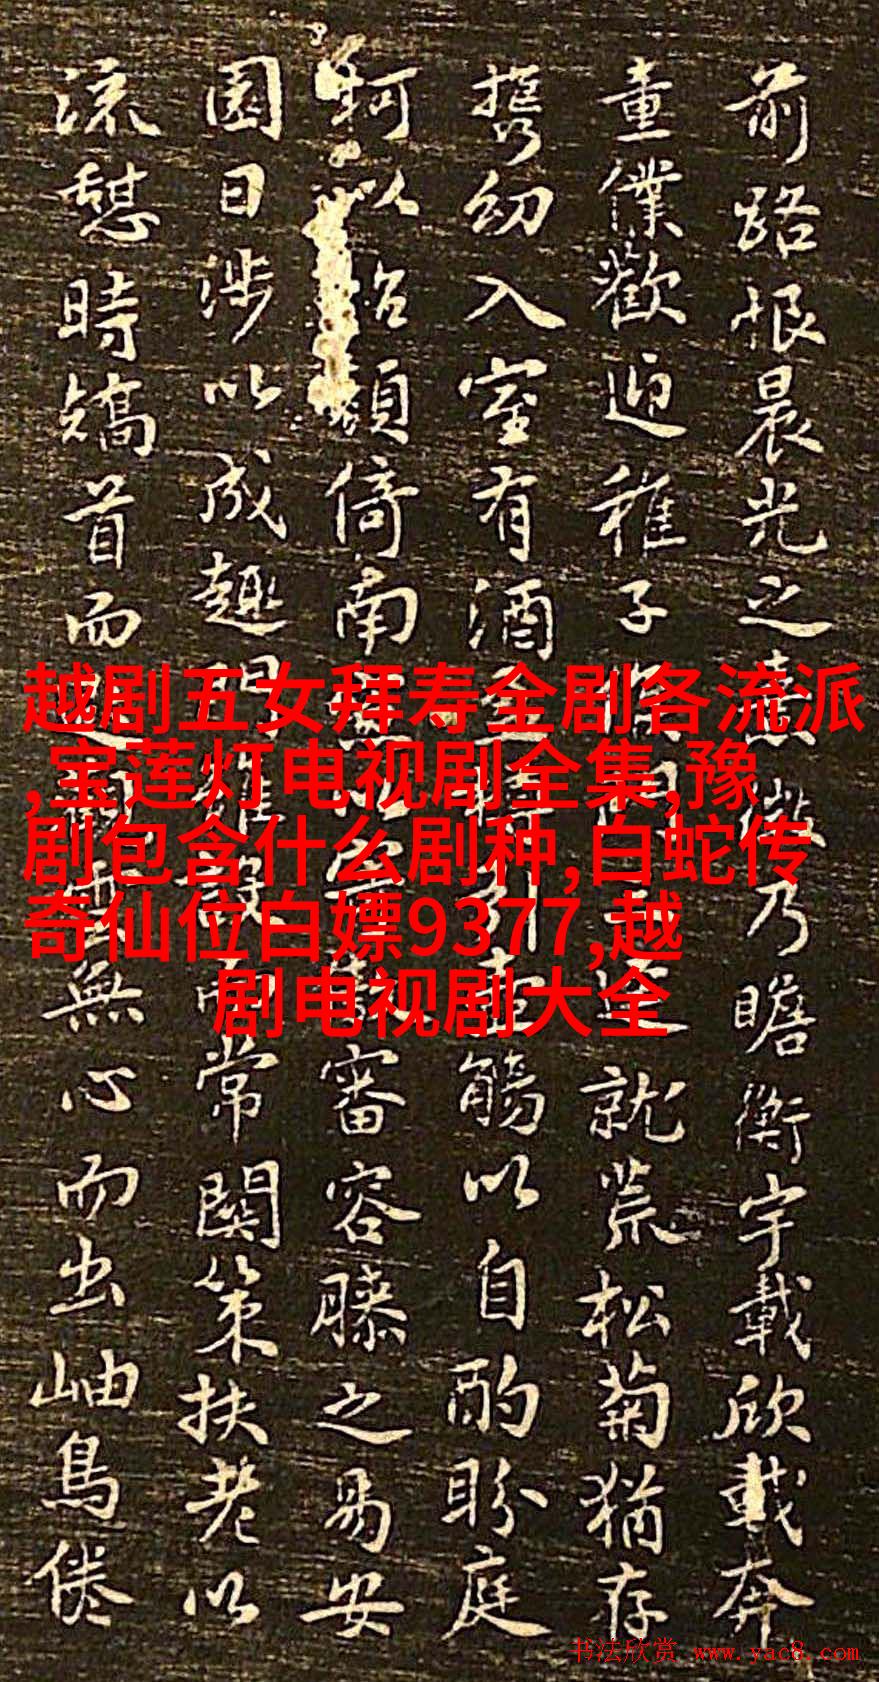 前路恨晨光之熹微乃瞻衡宇載欣載奔
童僕歡迎稚子候門三逕就荒松菊猶存
携幼入室有酒引壺觴以自酌盼庭
柯以怡顔倚南以審容膝之易安
園日涉以成趣門雖設而常関策扶老以
流憩時矯首而遐無心而出岫鳥倦
越剧五女拜寿全剧各流派
,宝莲灯电视剧全集,豫
剧包含什么剧种,白蛇传
奇仙位白嫖9377,越
剧电视剧大全
书法欣赏 www.yac8.com